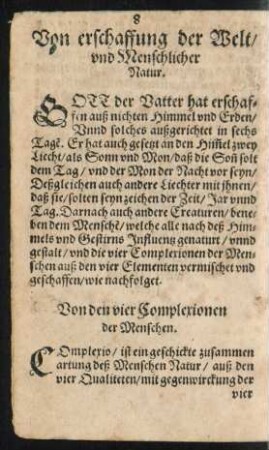 8
Von erschaffung der Welt/
vnd Menschlicher
Natur.
GOTT der Vatter hat erschaf-
fen auß nichten Himmel vnd Erden/
Vnnd solches außgerichtet in sechs
Tagē. Er hat auch gesetzt an den Him̃el zwey
Liecht/ als Sonn vnd Mon/ daß die Soñ solt
dem Tag/ vnd der Mon der Nacht vor seyn/
Deßgleichen auch andere Liechter mit jhnen/
daß sie/ solten seyn zeichen der Zeit/ Jar vnnd
Tag. Darnach auch andere Creaturen/ bene-
ben dem Menschē/ welche alle nach deß Him-
mels vnd Gestirns Influentz genaturt/ vnnd
gestalt/ vnd die vier Complexionen der Men-
schen auß den vier Elementen vermischet vnd
geschaffen/ wie nachfolget.
Von den vier Complexionen
der Menschen.
COmplexio/ ist ein geschickte zusammen
artung deß Menschen Natur/ auß den
vier Qualiteten/ mit gegenwirckung der
vier